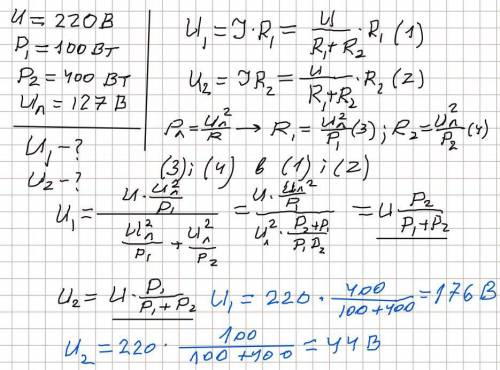 U = 220 В
P₁ = 100 Вт
P₂ = 400 Вт
Uл = 127 В
U₁ - ?
U₂ - ?
U₁ = I · R₁ = U / (R₁ + R₂) · R₁ (1)
U₂ = I R₂ = U / (R₁ + R₂) · R₂ (2)
Pл = Uл² / R → R₁ = Uл² / P₁ (3) ; R₂ = Uл² / P₂ (4)
(3) ; (4) в (1) ; (2)
U₁ = (U · Uл² / P₁) / (Uл² / P₁ + Uл² / P₂) = (U · Uл² / P₁) / (Uл² · (P₂ + P₁) / (P₁ P₂)) = U P₂ / (P₁ + P₂)
U₂ = U · P₁ / (P₁ + P₂) U₁ = 220 · 400 / (100 + 400) = 176 В
U₂ = 220 · 100 / (100 + 400) = 44 В